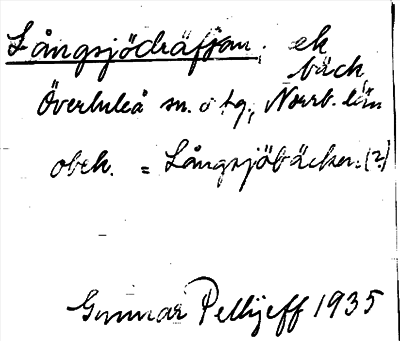 Långsjödräfsan, ek
bäck
Överluleå sn. o tg., Norrb. län
obek. = Långsjöbäcken. (?)
Gunnar Pellijeff 1935